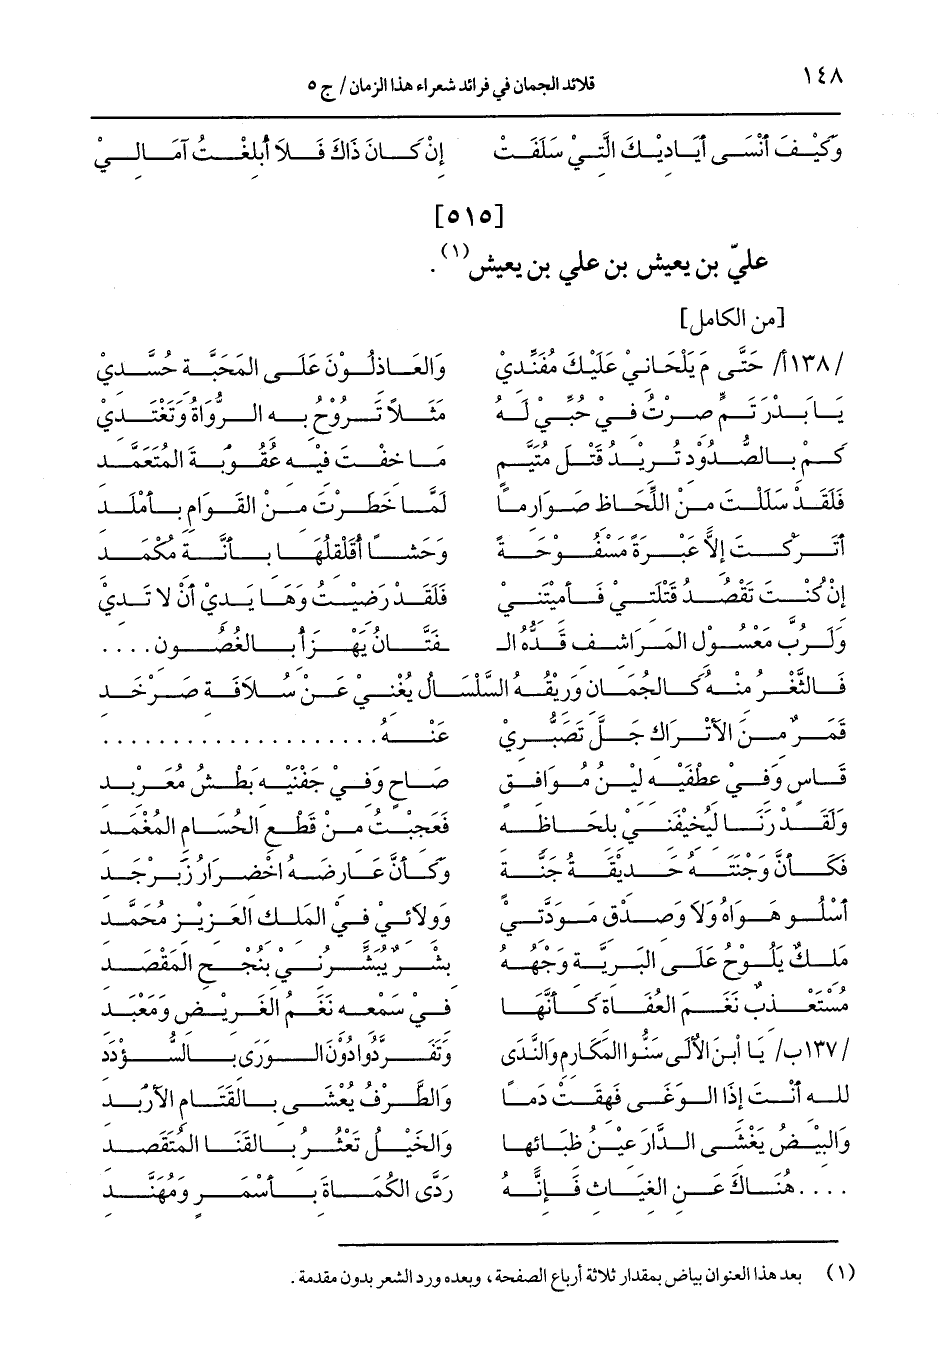 ١٤٨ قلائد الجمان في فرائد شعراء هذا الزمان / ج ٥
وَكَيْفَ أَنْسَى أَيَادِيْكَ الَّتِيْ سَلَفَتْ إِنْ كَانَ ذَاكَ فَلاَ أُبلِغْتُ آمَالِيْ
[٥١٥]
عليّ بن يعيش بن علي بن يعيش(١).
[من الكامل]
/١٣٨أ/ حَتَّى مَ يَلْحَانِيْ عَلَيْكَ مُفَنِّدِيْ وَالعَاذِلُوْنَ عَلَى المَحَبَّةِ حُسَّدِيْ
يَا بَدْرَ تَمٍّ صِرْتُ فِي حُبِّيْ لَهُ مَثَلاً تَرُوْحُ بِهِ الرُّوَاةُ وَتَغْتَدِيْ
كَمْ بِالصُّدُودِ تُرِيْدُ قَتْلَ مُتَيَّمٍ مَا خِفْتَ فِيْهِ عُقُوبَةَ المُتَعَمِّدِ
فَلَقَدْ سَلَلْتَ مِنْ اللِّحَاظِ صَوَارِماً لَمَّا خَطَرْتَ مِنْ القَوَامِ بِأَمْلَدِ
أَتَرَكْتَ إِلاَّ عَبْرَةً مَسْفُوحَةً وَحَشًا أُقَلْقِلُهَا بِأَنَّةِ مُكْمَدِ
إِنْ كُنْتَ تَقْصُدُ قَتْلَتِي فَأَمِتَّنِي فَلَقَدْ رَضِيْتُ وَهَا يَدِيْ أَنْ لاَ تَدِيْ
وَلَرُبَّ مَعْسُولِ المَرَاشِفِ قَدُّهُ الـ ـفَتَّانُ يَهْزَأُ بِالغُصُونِ ....
فَالثَّغْرُ مِنْهُ كَالجُمَانِ وَرِيْقُهُ السَّلْسَالُ يُغْنِيْ عَنْ سُلاَفَةِ صَرْخَدِ
قَمَرٌ مِنَ الأَتْرَاكِ جَلَّ تَصَبُّرِي عَنْهُ ....................
قَاسٍ وَفِيْ عِطْفَيْهِ لِيْنُ مُوَافِقٍ صَاحٍ وَفِيْ جَفْنَيْهِ بَطْشُ مُعَرْبِدِ
وَلَقَدْ رَنَا لِيُخِيْفَنِيْ بِلِحَاظِهِ فَعَجِبْتُ مِنْ قَطْعِ الحُسَامِ المُغْمَدِ
فَكَأَنَّ وَجْنَتَهُ حَدِيْقَةُ جَنَّةٍ وَكَأَنَّ عَارِضَهُ اخْضِرَارُ زَبَرْجَدِ
أَسْلُو هَوَاهُ وَلاَ وَصِدْقِ مَوَدَّتِيْ وَوِلاَئِيْ فِيْ المَلِكِ العَزِيْزِ مُحَمَّدِ
مَلِكٌ يَلُوْحُ عَلَى البَرِيَّةِ وَجْهُهُ بِشْرٌ يُبَشِّرُنِي بِنُجْحِ المَقْصَدِ
مُسْتَعْذِبٌ نَغَمَ العُفَاةِ كَأَنَّهَا فِيْ سَمْعِهِ نَغَمُ الغَرِيْضِ وَمَعْبَدِ
/١٣٧ب/ يَا أبنَ الأُلَى سَنُّوا المَكَارِمَ وَالنَّدَى وَتَفَرَّدُوا دُوْنَ الوَرَى بِالسُّؤْدَدِ
للهِ أَنْتَ إِذَا الوَغَى فَهِقَتْ دَماً وَالطَّرْفُ يُعْشَى بِالقَتَامِ الأَرْبَدِ
وَالبِيْضُ يَغْشَى الدَّارَعِيْنَ ظُبَاتُهَا وَالخَيْلُ تَعْثُرُ بِالقَنَا المُتَقَصِّدِ
.... هُنَاكَ عَنِ الغِيَاثِ فَإِنَّهُ رَدَّى الكُمَاةَ بِأَسْمَرٍ وَمُهَنَّدِ
(١) بعد هذا العنوان بياض بمقدار ثلاثة أرباع الصفحة، وبعده ورد الشعر بدون مقدمة.